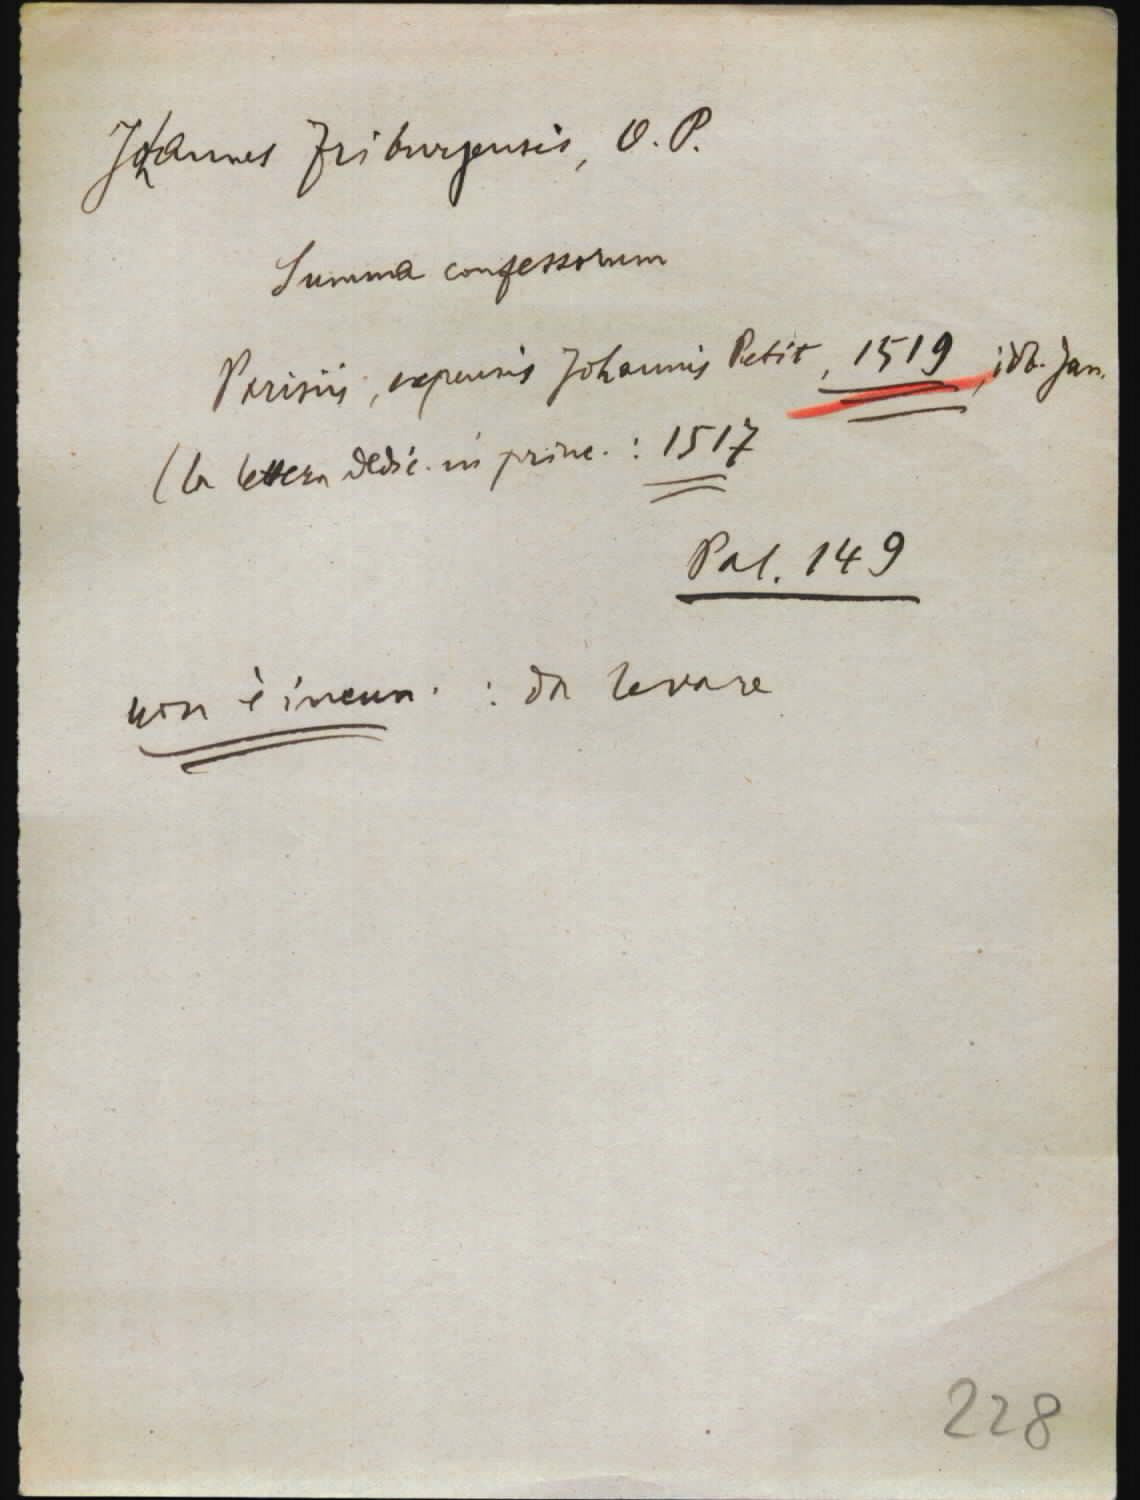 Johannes Friburgensis, O.P.
Summa confessorum
Parisiis, expensis Johannis Petit, 1519, idb. Jan.
(la lettera dedic. in princ. : 1517
Pal. 149
non è incun. : da levare
228